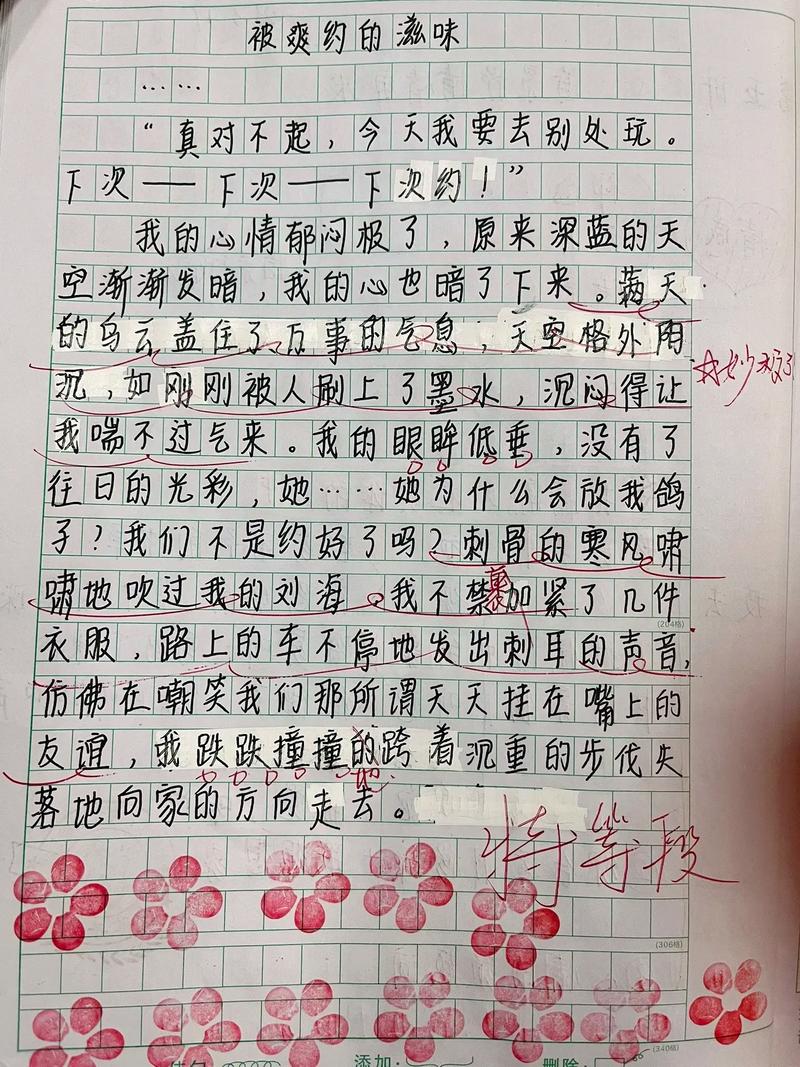 被爽约的滋味
……
“真对不起，今天我要去别处玩。
下次——下次——下次约！”
我的心情郁闷极了，原来深蓝的天
空渐渐发暗，我的心也暗了下来。满天
的乌云盖住了万事的气息，天空格外阴
沉，如刚刚被人刷上了墨水，沉闷得让
我喘不过气来。我的眼眸低垂，没有了
往日的光彩，她……她为什么会放我鸽
子？我们不是约好了吗？刺骨的寒风啸
啸地吹过我的刘海，我不禁裹加紧了几件
(204格)
衣服，路上的车不停地发出刺耳的声音，
仿佛在嘲笑我们那所谓天天挂在嘴上的
友谊，我跌跌撞撞的跨着沉重的步伐失
地
落地向家的方向走去。
特等段
(306格)
(340格)
佳句：
添加：
删除：